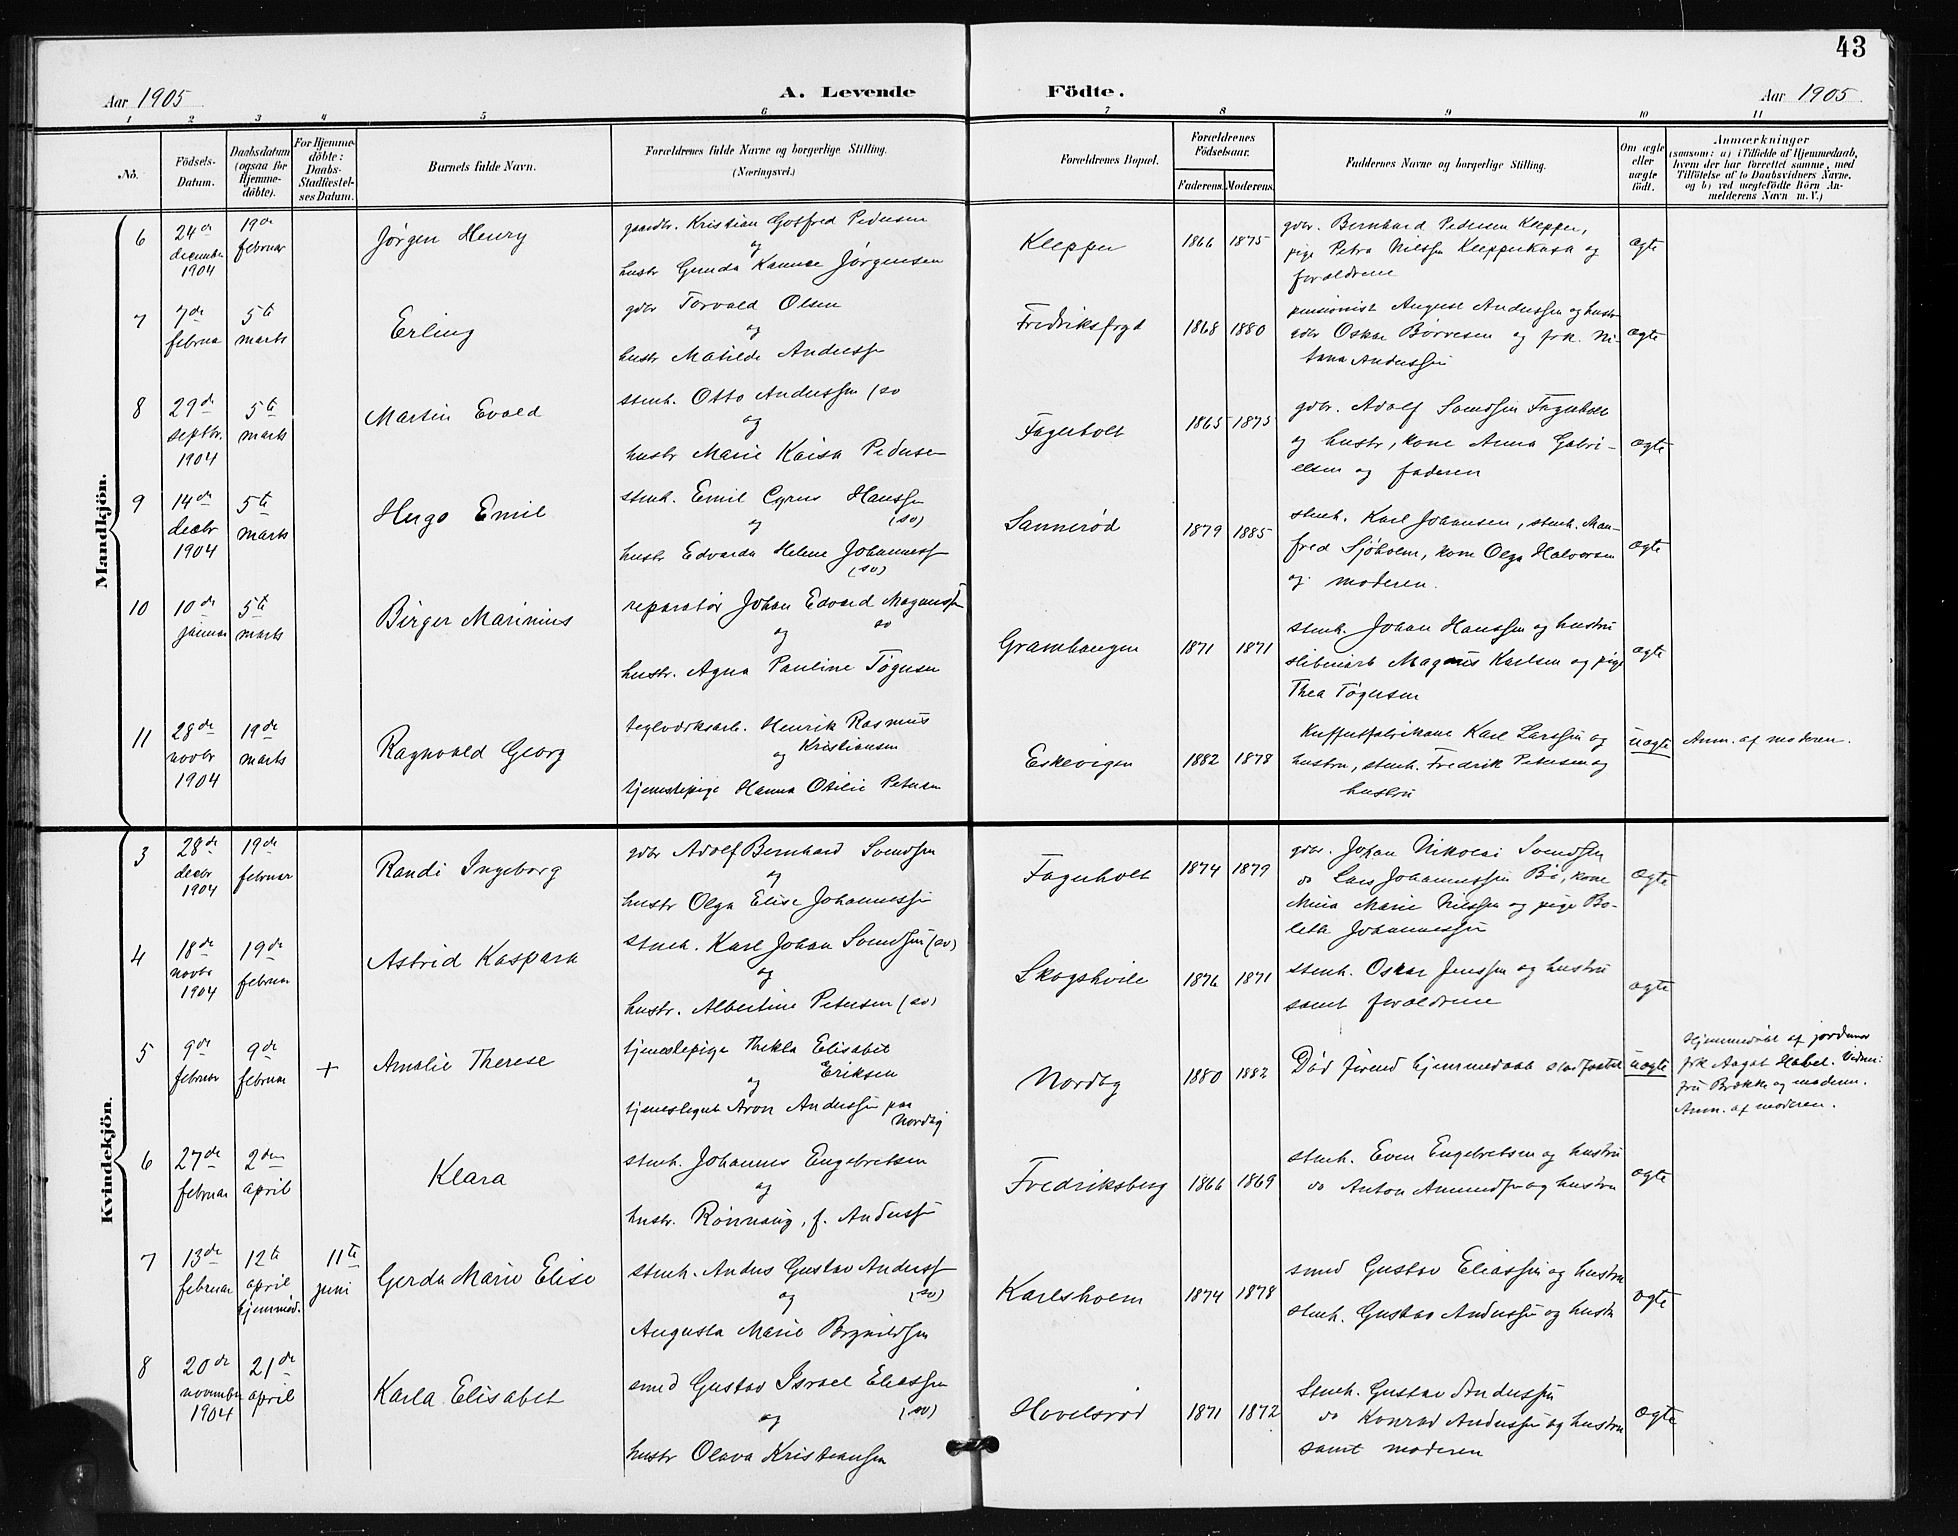 43
Aar 1905
A. Levende Födte.
Aar 1905
1 2 3 4 5 6 7 8 9 10 11
No.
Födsels-Datum.
Daabsdatum (ogsaa for Hjemme-döbte).
For Hjemme-döbte: Daabs-Stadfæstel-ses Datum.
Barnets fulde Navn.
Forældrenes fulde Navne og borgerlige Stilling. (Næringsvei.)
Forældrenes Bopæl.
Forældrenes Födselsaar.
Faderens. Moderens.
Faddernes Navne og borgerlige Stilling.
Om ægte eller uægte födt.
Anmærkninger
(saasom: a) i Tilfælde af Hjemmedaab, hvem der har forrettet samme, med Tilföielse af to Daabsvidners Navne, og b) ved uægtefödte Börn Anmelderens Navn m. V.)
Mandkjön.
6
24de december 1904
19de februar
Jørgen Henry
gaardbr. Kristian Gotfred Pedersen
og
hustr Gunda Kamae Jørgensen
Klepper
1866 1875
gdbr. Bernhard Pedersen Klepper,
pige Petra Nilssen Klepperkasa og
forældrene
ægte
7
7de februar
5te marts
Erling
gdbr Torvald Olsen
og
hustr Matilde Anderssen
Fredriksfryd
1868 1880
pensionist August Anderssen og hustr
gdbr Oskar Børresen og frk. Ni-
tana Anderssen
ægte
8
29de septbr. 1904
5te marts
Martin Evald
stenh. Otto Anderssen (sv
og
hustr Marie Kaisa Pedersen
Fagerholt
1865 1875
gdbr. Adolf Svendsen Fagerholt
og hustr, kone Anna Gabri-
elsen og faderen
ægte
9
14de decbr 1904
5te marts
Hugo Emil
stenh. Emil Cyrus Hanssen
og (sv)
hustr Edvarda Helene Johannessen
(sv)
Sannerød
1879 1885
stenh. Karl Johansen, stenh. Man-
fred Sjøholm, kone Olga Halvorsen
og moderen.
ægte
10
10de januar
5te marts
Birger Marinius
reparatør Johan Edvard Magnussen
og sv
hustr. Agna Pauline Tøgersen
Gramhaugen
1871 1871
stenh. Johan Hanssen og hustru
sliberiarb Magnus Karlsen og pige
Thea Tøgersen
ægte
11
28de novbr 1904
19de marts
Ragnvald Georg
teglværksarb. Henrik Rasmus
og Kristiansen
tjenestepige Hanna Otilie Petersen
Eskevigen
1882 1878
Kuffertfabrikant Karl Larssen og
hustru, stenh. Fredrik Petersen og
hustru
uægte
Anm. af moderen.
Kvindekjön.
3
28de decbr 1904
19de februar
Randi Ingeborg
gdbr Adolf Bernhard Svendsen
og
hustr Olga Elise Johannessen
Fagerholt
1874 1879
gdbr. Johan Nikolai Svendsen
do Lars Johannessen Bö, kone
Mina Marie Nilssen og pige Bo-
lette Johannessen
ægte
4
18de novbr 1904
19de februar
Astrid Kaspara
stenh. Karl Johan Svendsen (sv)
og
hustr. Albertine Petersen (sv)
Skogshvile
1876 1871
stenh. Oskar Jenssen og hustru
samt forældrene
ægte
5
9de februar
9de februar
+
Amalie Therese
tjenestepige Thekla Elisabet
og Eriksen
tjenestegut Aron Anderssen paa
Nordby
Nordby
1880 1882
Död förend hjemmedaab stadfæstet
uægte
Hjemmedöbt af jordmor
frk Aagot Habel. Vidner:
fru Brække og moderen.
Anm. af moderen.
6
27de februar
2den april
Klara
stenh. Johannes Engebretsen
og
hustr. Rønnaug, f. Anderssen
Fredriksberg
1866 1869
stenh. Even Engebretsen og hustru
do Anton Amundsen og hustru
ægte
7
13de februar
12te april hjemmed.
11te juni
Gerda Marie Elise
stenh. Anders Gustav Anderssen
og (sv)
Augusta Marie Brynildsen
Karlsholm
1874 1878
smed Gustav Eliassen og hustru
stenh. Gustav Anderssen og hustru
ægte
8
20de november 1904
21de april
Karla Elisabet
smed Gustav Israel Eliassen
og (sv)
hustr Olava Kristiansen
Hovelsrød
1871 1872
Stenh. Gustav Anderssen
do Konrad Anderssen og hustru
samt moderen
ægte